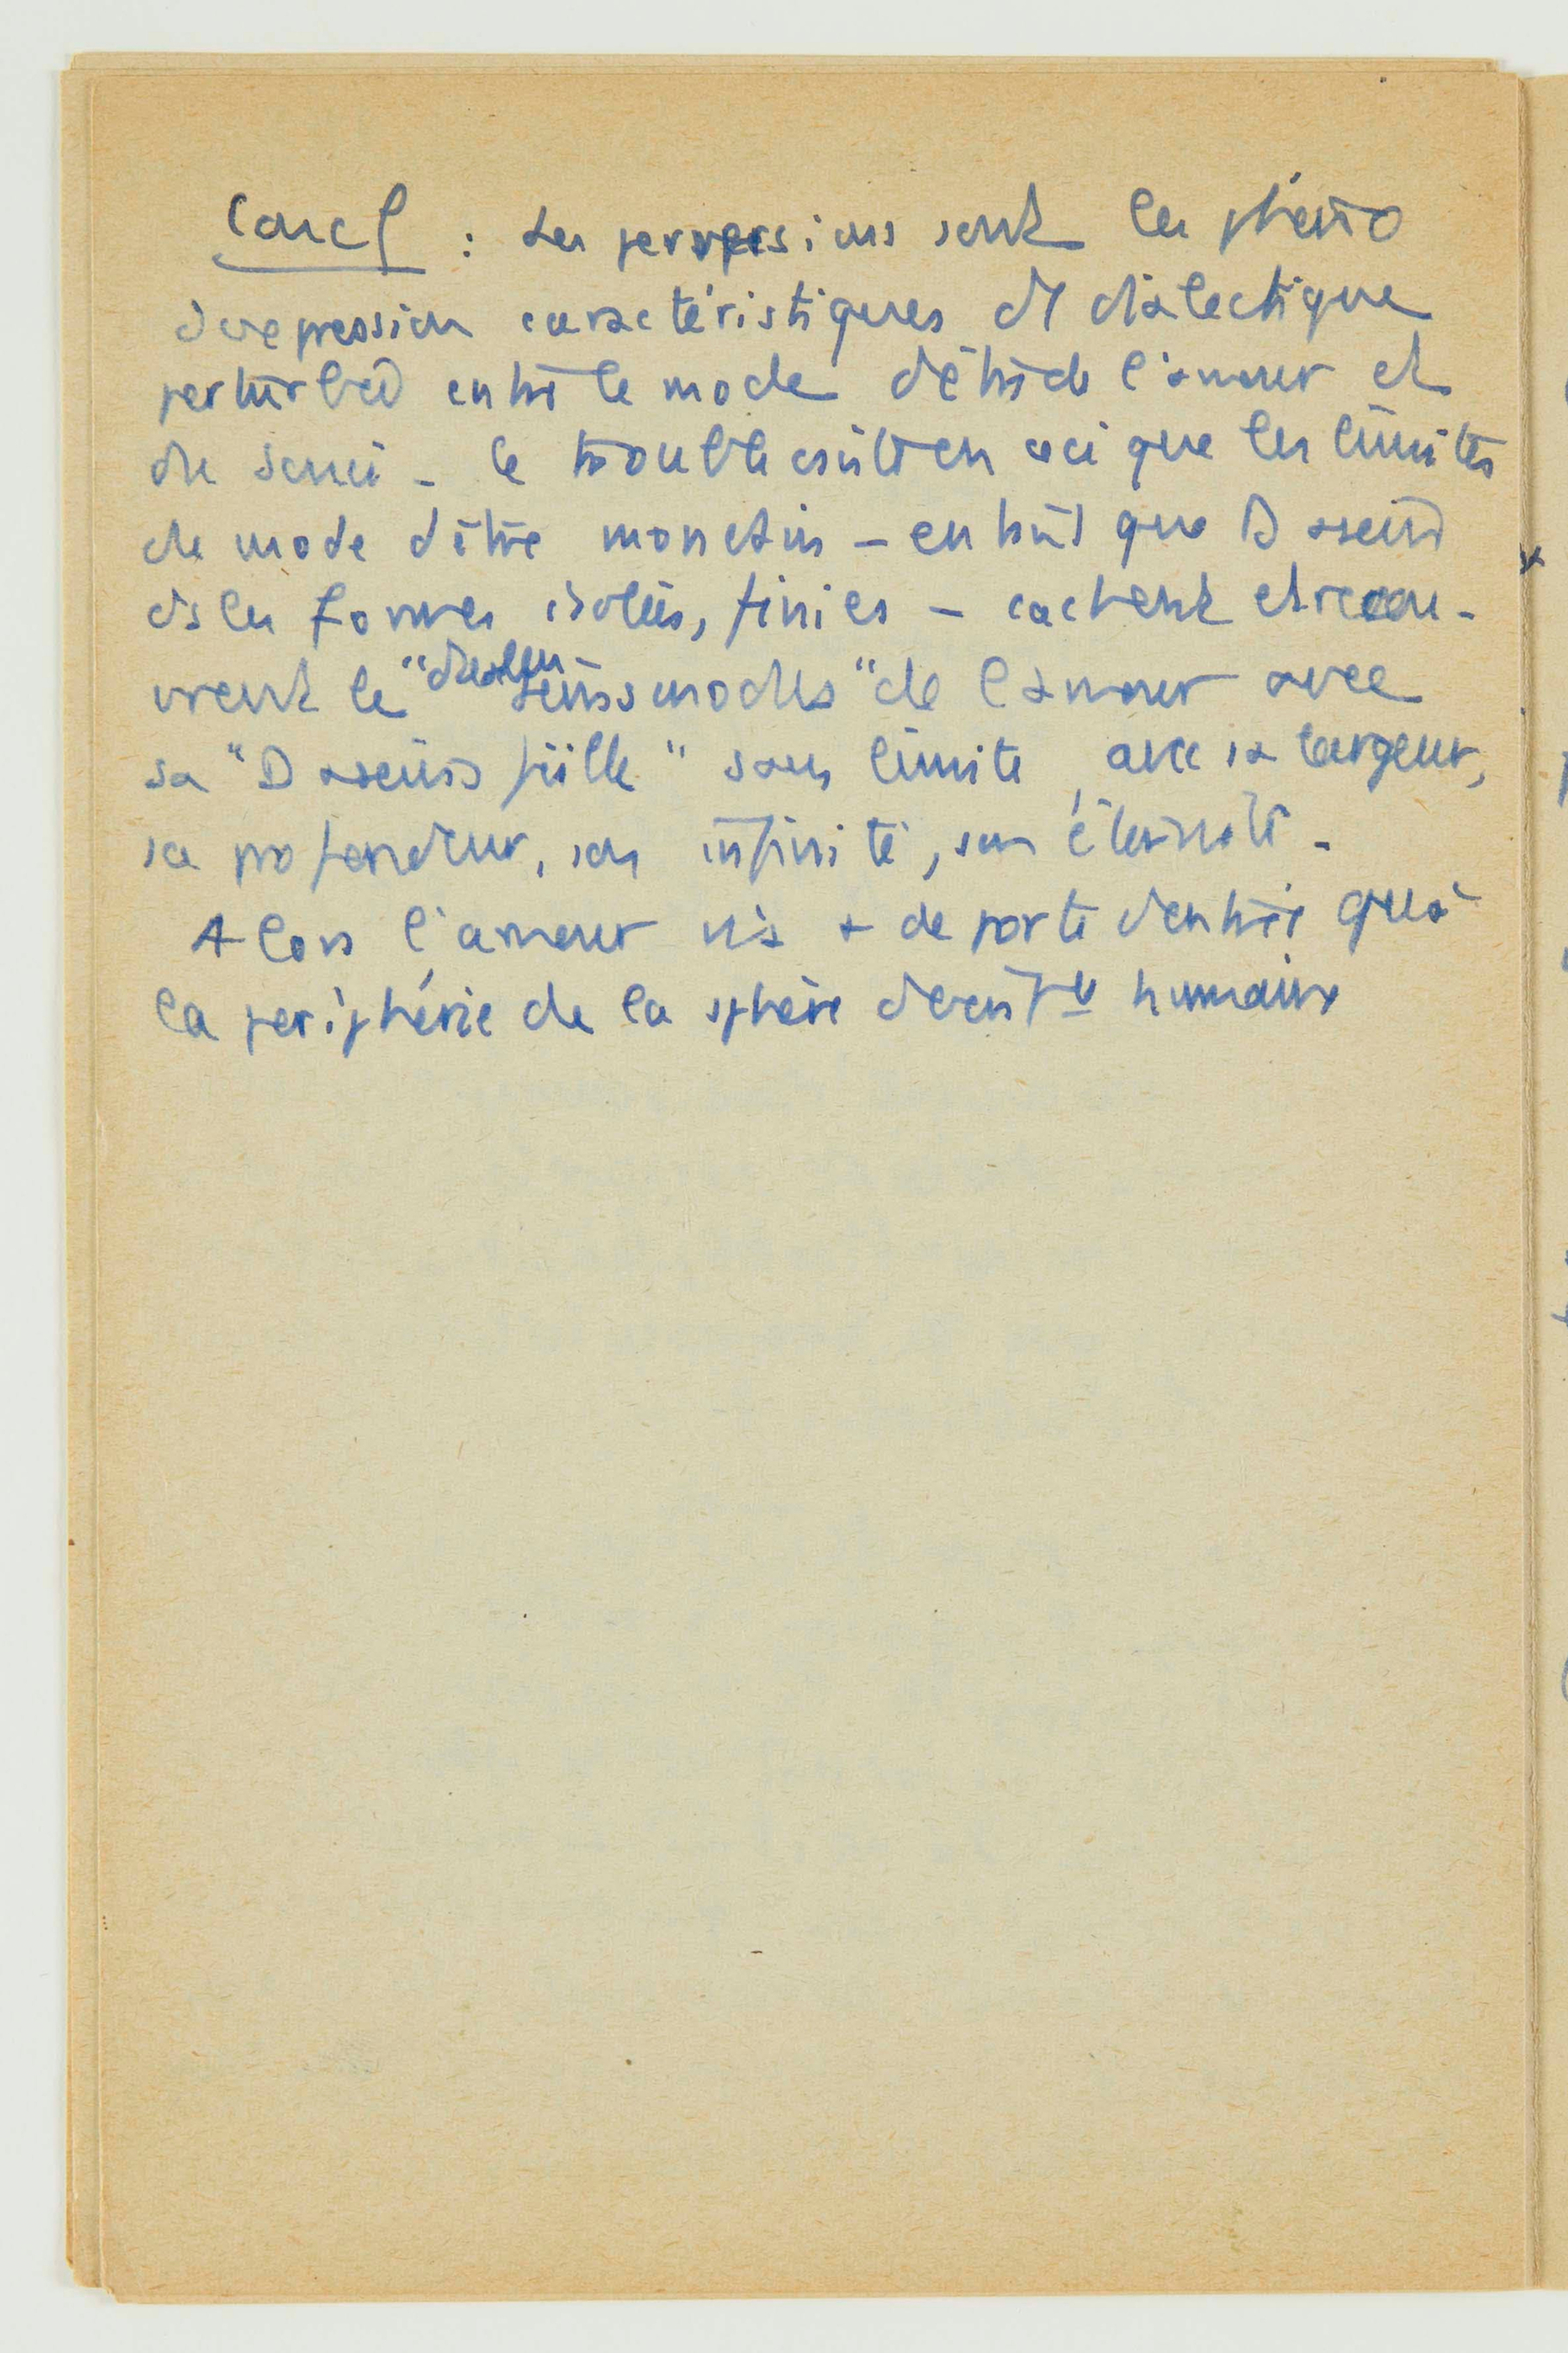 Concl : Les perversions sont les phéno
d'expression caractéristiques d' dialectique
perturbée entre le mode d'être de l'amour et
du souci - le trouble consiste en ceci que les limites
du mode d'être mondain - en tant que Dasein
ds les formes isolées, finies - cachent et recou-
vrent le "dualen Seinsmodus" de l'amour avec
sa "Daseinsfülle" sans limite, avec sa largeur,
sa profondeur, son infinité, son éternité.
Alors l'amour n'a + de porte d'entrée qu'à
la périphérie de la sphère humaine